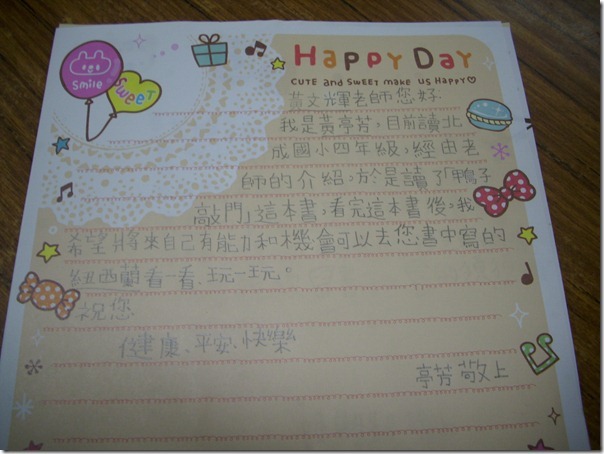 HAPPY DAY
CUTE and SWEET make US HAPPY♡
smile
SWEET
黃文輝老師您好:
我是黃亭芳,目前讀北
成國小四年級,經由老
師的介紹,於是讀了「鴨子
敲門」這本書,看完這本書後,我
希望將來自己有能力和機會可以去您書中寫的
紐西蘭看一看、玩一玩。
祝您
健康、平安、快樂
亭芳 敬上